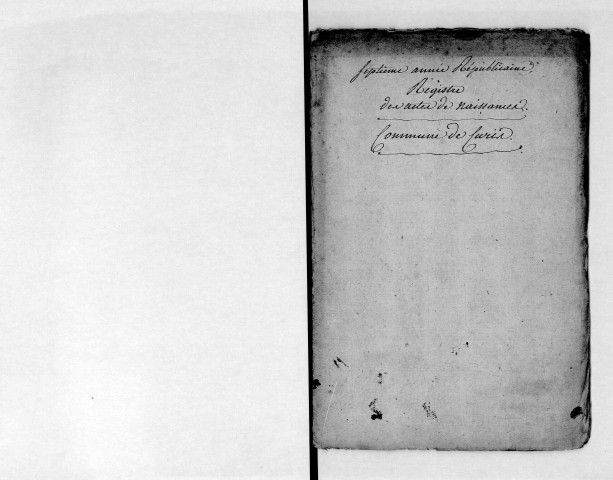 Septieme année Républicaine.
Registre
des actes de naissances.
Commune de Curis.